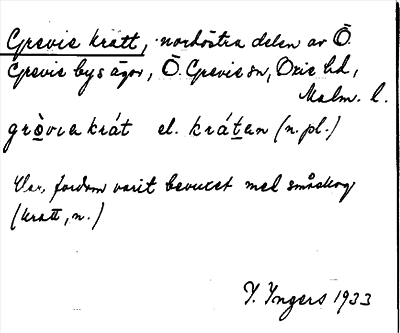 Grevie kratt, nordöstra delen av Ö.
Grevie bys ägor, Ö. Grevie sn, Oxie hd,
Malm. l.
gròviakrát el. krátan (n.pl.)
Har fordom varit bevuxet med småskog
(kratt, n.)
I. Ingers 1933